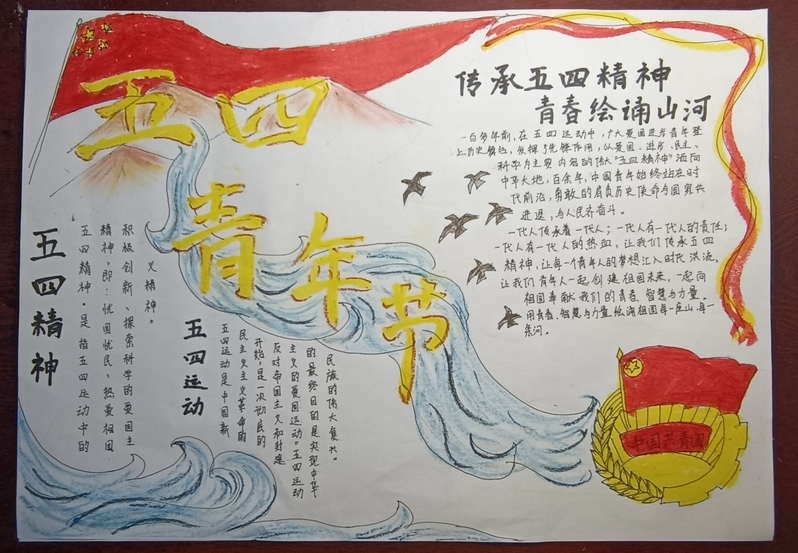 五四
青年节
传承五四精神
青春绘诵山河
一百多年前,在五四运动中,广大爱国进步青年登
上历史舞台,发挥了先锋作用,以爱国、进步、民主、
科学为主要内容的伟大“五四精神”洒向
中华大地,百余年,中国青年始终站在时
代前沿,勇敢的肩负历史使命与国家共
进退,与人民齐奋斗。
一代人传承着一代人;一代人有一代人的责任;
一代人有一代人的热血,让我们传承五四
精神,让每一个青年人的梦想汇入时代洪流。
让我们青年人一起创建祖国未来,一起向
祖国奉献我们的青春、智慧与力量。
用青春、智慧与力量绘满祖国每一座山,每一
条河。
五四精神
五四精神 是指五四运动中的
精神,即:忧国忧民、热爱祖国
积极创新、探索科学的爱国主
义精神。
五四运动
五四运动是中国新
民主主义革命的
开始,是一次彻底的
反对帝国主义和封建
主义的爱国运动。五四运动
的最终目的是实现中华
民族的伟大复兴。
中国共青团